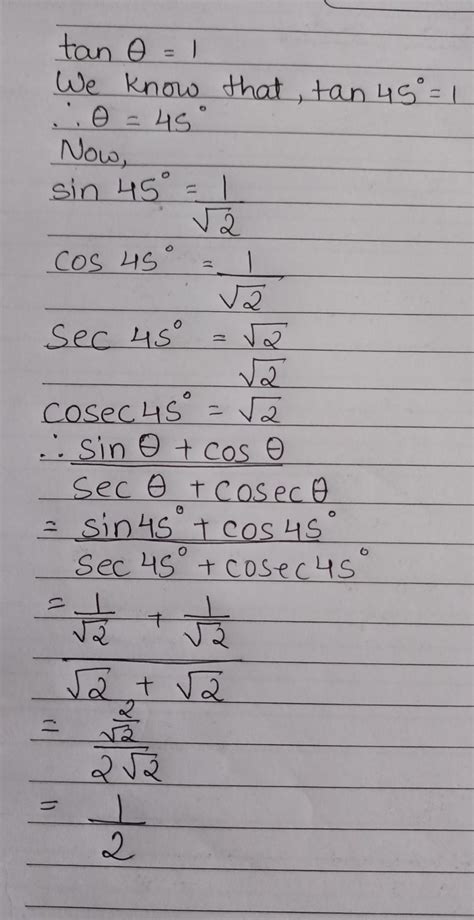 tan θ = 1
We know that, tan 45° = 1
∴ θ = 45°
Now,
sin 45° = 1
√2
cos 45° = 1
√2
sec 45° = √2
√2
cosec 45° = √2
∴ sin θ + cos θ
sec θ + cosec θ
= sin 45° + cos 45°
sec 45° + cosec 45°
= 1/√2 + 1/√2
√2 + √2
= 2/√2
2√2
= 1
2